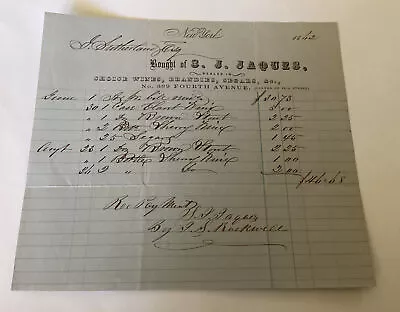 New York 1862
J. Sutherland Esq
Bought of S. J. JAQUES,
DEALER IN
CHOICE WINES, BRANDIES, SEGARS, &c.,
No. FOURTH AVENUE,
June 1 To $30.73
30 1 Case Claret Wine 5.00
" 1 Dz Brown Stout 2.25
" 2 Bott Sherry Wine 2.00
" 25 Segars 1.45
Augt 23 1 Dz Brown Stout 2.25
" 1 Bottle Sherry Wine 1.00
26 2 " Do 2.00
$46.68
Rec Payment
S J Jaques
By J. S. Rockwell